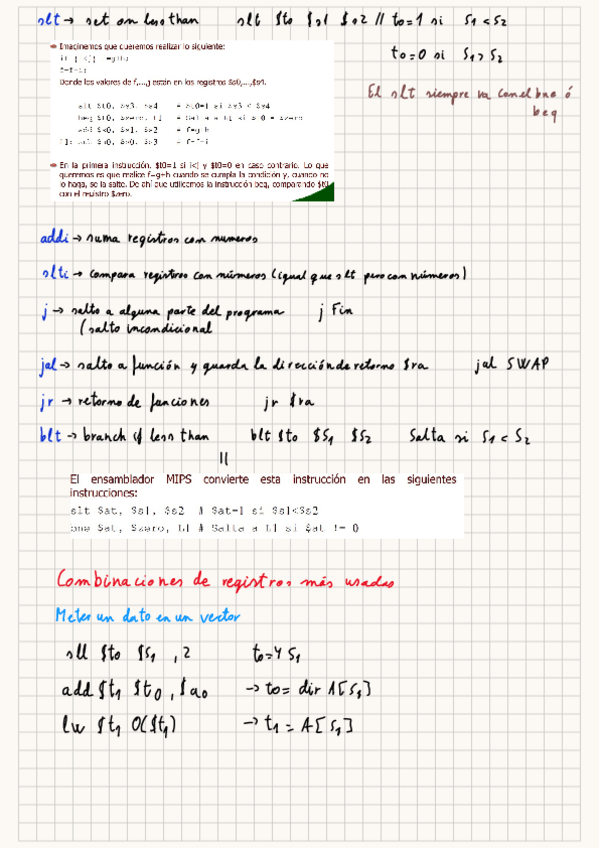 slt → set on less than   slt $t0 $s1 $s2 // t0=1 si s1 < s2
t0=0 si s1 > s2
El slt siempre va con el bne ó
beq
Imaginemos que queremos realizar lo siguiente:
f=g+h
f=f-i;
Donde los valores de f,...,j están en los registros $s0,...,$s4.
slt $t0, $s3, $s4   = $t0=1 si $s3 < $s4
beq $t0, $zero, L1   = Salta a L1 si = $zero
add $s0, $s1, $s2   = f=g+h
L1: sub $s0, $s0, $s3   = f=f-i
En la primera instrucción, $t0=1 si i<j y $t0=0 en caso contrario. Lo que
queremos es que realice f=g+h cuando se cumpla la condición y, cuando no
lo haga, se la salte. De ahí que utilicemos la instrucción beq, comparando $t0
con el registro $zero.
addi → suma registros con numeros
slti → compara registros con números (igual que slt pero con números)
j → salto a alguna parte del programa   j Fin
(salto incondicional
jal → salto a función y guarda la dirección de retorno $ra   jal SWAP
jr → retorno de funciones   jr $ra
blt → branch if less than   blt $t0 $s1 $s2   Salta si s1 < s2
||
El ensamblador MIPS convierte esta instrucción en las siguientes
instrucciones:
slt $at, $s1, $s2 # $at=1 si $s1<$s2
bne $at, $zero, L1 # Salta a L1 si $at != 0
Combinaciones de registros más usadas
Meter un dato en un vector
sll $t0 $s1 , 2   t0=4 s1
add $t1 $t0 , $a0   → t0= dir A[s1]
lw $t1 0($t1)   → t1 = A[s1]